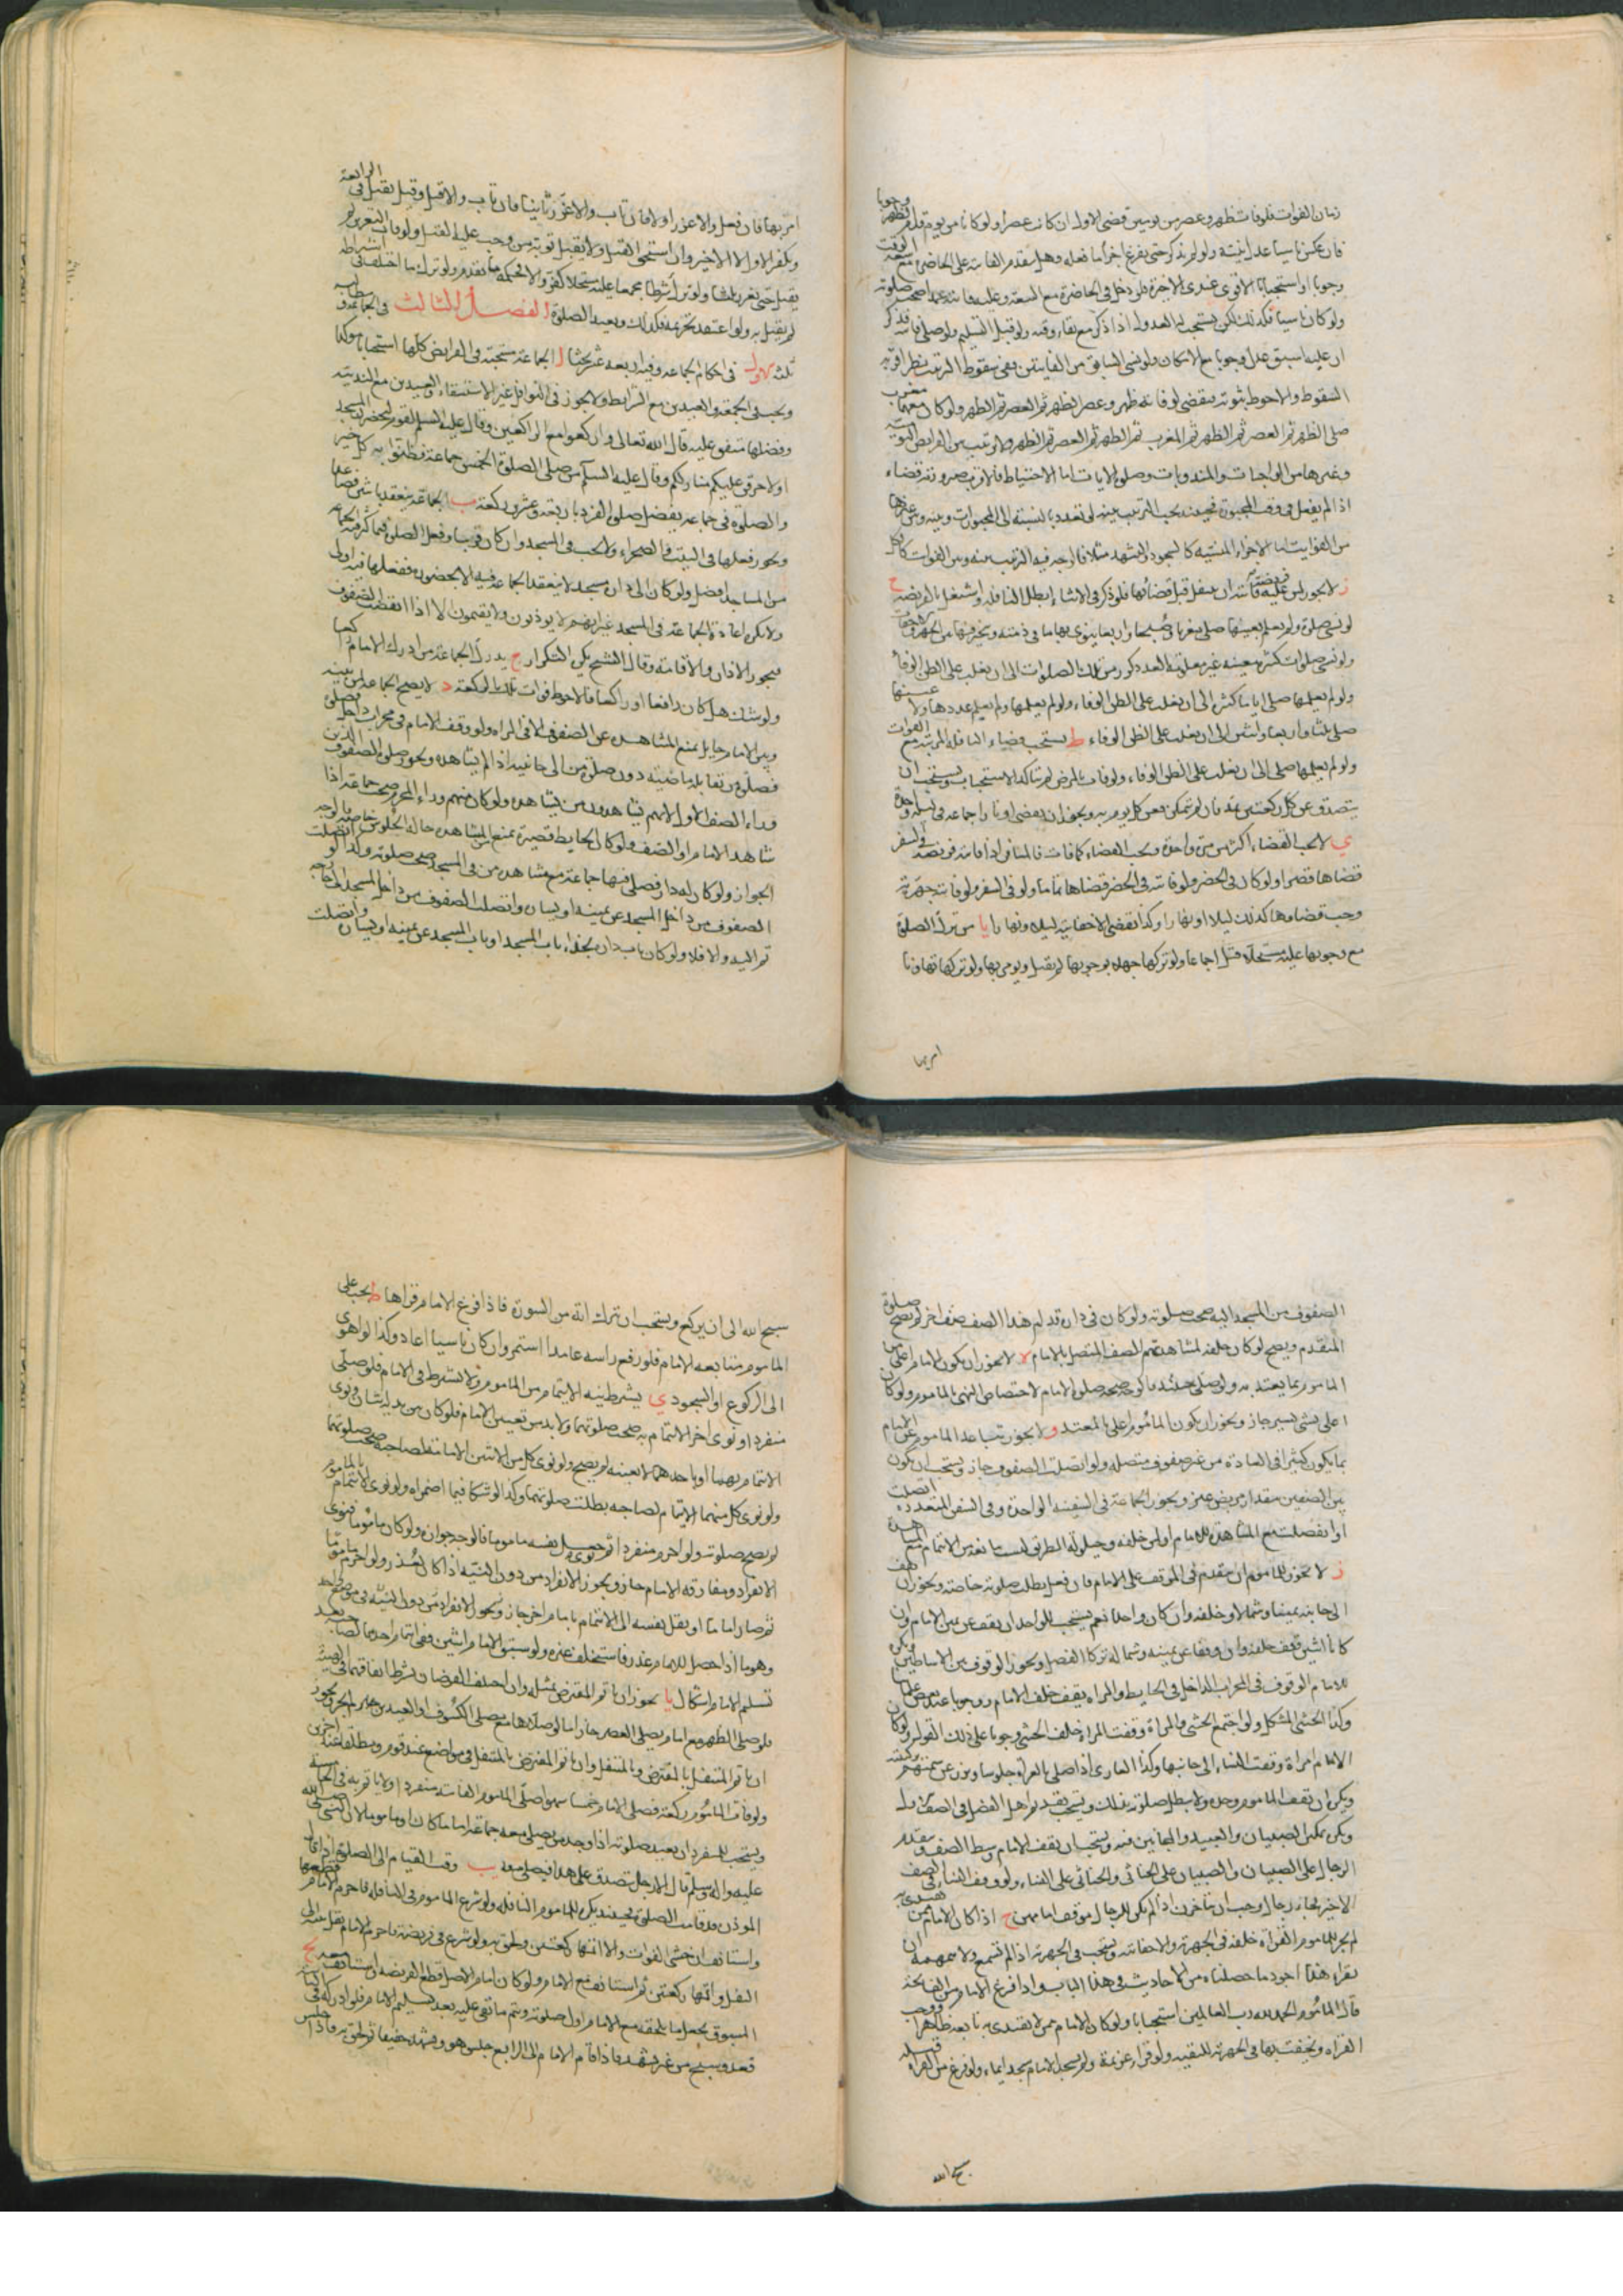 زمان الفوات فلو فات ظهر وعصر من يومين قضى الاول ان كان عصرا ولو كانا من يوم قدم الظهر وجوبا
فان عكس ناسيا عدل بنيته ولو لم يذكر حتى يفرغ اجزأ ما فعله وهل يتقدم الفائتة على الحاضرة مع سعة الوقت
وجوبا او استحبابا الاقوى عندى الاخير فلو دخل فى الحاضرة مع السعة وعليه فائتة عمدا صحت صلوته
ولو كان ناسيا فكذلك لكن يستحب له العدول اذا ذكر مع بقاء وقته ولو قبل التسليم ولو صلى فائتة فذكر
ان عليه اسبق عدل وجوبا مع الامكان ولو نسى السابق من الفايتين ففى سقوط الترتيب نظر اقربه
السقوط والاحوط ثبوته فيقضى لو فاته ظهر وعصر الظهر ثم العصر ثم الظهر ولو كان معهما مغرب
صلى الظهر ثم العصر ثم الظهر ثم المغرب ثم الظهر ثم العصر ثم الظهر ولا ترتيب بين الفرايض اليومية
وغيرها من الواجبات والمندوبات وصلوة الايات اما الاحتياط فالاقرب صيرورته قضاء
اذا لم يفعل فى وقت المجبورة فحينئذ يجب الترتيب بينه لو تعدد بالنسبة الى المجبورات وبينه وبين غيرها
من الفوايت اما الاجزاء المنسية كالسجود والتشهد مثلا فلا وجه فيه الترتيب بينه وبين الفوات كالكل
ز لا يجوز لمن عليه فريضة فائتة ان يتنفل قبل قضائها فلو ذكر فى الاثناء ابطل النافلة واشتغل بالفريضة ح
لو نسى صلوة ولم يعلم بعينها صلى مغربا وصبحا واربعا ينوى بها ما فى ذمته ويتخير فيها بين الجهر والاخفات
ولو نسى صلوات كثيرة معينة غير معلومة العدد كرر من تلك الصلوات الى ان يغلب على الظن الوفاء
ولو لم يعلمها صلى اياما كثيرة الى ان يغلب على الظن الوفاء ولو لم يعلمها ولم يعلم عددها ولا عينها
صلى ثلثا واربعا واثنتين الى ان يغلب على الظن الوفاء ط يستحب قضاء النافلة المرتبة مع الفوات
ولو لم يعلمها صلى الى ان يغلب على الظن الوفاء ولو فات لمرض لم يتأكد الاستحباب ويستحب ان
يتصدق عن كل ركعتين بمد فان لم يتمكن فعن كل يوم بمد ويجوز ان يقضى اوتارا جماعة فى ليلة واحدة
ي لا يجب القضاء اكثر من مرة واحدة ويجب القضاء كما فات فالمسافر اذا فاتته فريضة فى السفر
قضاها قصرا ولو كان فى الحضر ولو فاتته فى الحضر قضاها تماما ولو فى السفر ولو فاتته جهرية
وجب قضاوها كذلك ليلا او نهارا وكذا تقضى الاخفاتية ليلا ونهارا يا من ترك الصلوة
مع وجوبها عليه مستحلا قتل اجماعا ولو تركها جهلا بوجوبها لم يقتل ويومر بها ولو تركها تهاونا
امر بها
امر بها فان فعل والا عزر اولا فان تاب والا عزر ثانيا فان تاب والا قتل وقيل يقتل فى الرابعة
يقتل حتى يعزر ثلثا ولو ترك شرطا مجمعا عليه مستحلا كفر والا فحكمه ما تقدم ولو ترك ما اختلف فى اشتراطه
لم يقتل به ولو اعتقد تحريمه فكذلك ويعيد الصلوة الفصل الثالث فى الجماعة وفيه مطالب
ثلثة الاول فى احكام الجماعة وفيه اربعة عشر بحثا ا الجماعة مستحبة فى الفرايض كلها استحبابا موكدا
ويجب فى الجمعة والعيدين مع الشرايط ولا يجوز فى النوافل غير الاستسقاء والعيدين مع الندبية
وفضلها متفق عليه قال الله تعالى واركعوا مع الراكعين وقال عليه السلم لقوم لتحضرن المسجد
او لاحرقن عليكم منازلكم وقال عليه السلم من صلى الصلوة الخمس جماعة فظنوا به كل خير
والصلوة فى جماعة يفضل صلوة الفرد باربعة وعشرين ركعة ب الجماعة ينعقد باثنين فصاعدا
ويجوز فعلها فى البيت والصحراء ويستحب فى المسجد وان كان قريبا وفعل الصلوة فيما كثر فيه الجماعة
من المساجد افضل ولو كان الى داره مسجد لا ينعقد الجماعة فيه الا بحضوره ففعلها فيه اولى
ولا يكره اعادة الجماعة فى المسجد غير انهم لا يوذنون ولا يقيمون الا اذا انفضت الصفوف
فيجوز الاذان والاقامة وقال الشيخ يكره التكرار ج يدرك الجماعة من ادرك الامام راكعا
ولو شك هل كان رافعا او راكعا فالاحوط فوات تلك الركعة د لا يصح الجماعة لمن بينه
وبين الامام حايل يمنع المشاهدة عن الصفوف الا فى المراة ولو وقف الامام فى محراب داخل فصلى
فصلوة من تقابله ماضية دون صلوة من الى جانبيه اذا لم يشاهده ويجوز صلوة الصفوف الذين
وراء الصف الاول لانهم يشاهدون من يشاهده ولو كان منهم وراء المحرم صحت جماعة اذا
شاهد الامام او الصف ولو كان الحايط قصيرة يمنع المشاهدة حالة الجلوس خاصة فالوجه
الجواز ولو كان له دار فصلى فيها جماعة مع مشاهدة من فى المسجد صح صلوته وكذا لو اتصلت
الصفوف من داخل المسجد عن يمينه او يساره واتصلت الصفوف من داخل المسجد الى خارجه
ثم اليه والا فلا ولو كان باب داره بحذاء باب المسجد او باب المسجد عن يمينه او يساره واتصلت
الصفوف من المسجد اليه صحت صلوته ولو كان فى داره قدام هذا الصف صف اخر لم يصح صلوة
المتقدم ويصح لو كان خلفه لمشاهدتهم الصف المتصل بالامام ه لا يجوز ان يكون الامام اعلى من
الماموم بما يعتد به ولو صلى حينئذ فالوجه صحة صلوة الامام لاختصاص النهى بالماموم ولو كان
اعلى بشى يسير جاز ويجوز ان يكون الماموم اعلى بالمعتد و لا يجوز تباعد الماموم عن الامام
بما يكون كثيرا فى العادة من غير صفوف متصلة ولو اتصلت الصفوف جاز ويستحب ان يكون
بين الصفين مقدار مربض عنز ويجوز الجماعة فى السفينة الواحدة وفى السفن المتعددة اتصلت
او انفصلت مع المشاهدة للامام او لمن خلفه وحيلولة الطرق ليست مانعة من الائتمام مع المشاهدة
ز لا يجوز للماموم ان يتقدم فى الموقف على الامام فان فعل بطل صلوته خاصة ويجوز ان يقف
الى جانبه يمينا وشمالا وخلفه وان كان واحدا نعم يستحب للواحد ان يقف عن يمين الامام وان
كانا اثنين وقف خلفه وان وقفا عن يمينه وشماله تركا الفضل ويجوز الوقوف بين الاساطين ويكره
للامام الوقوف فى المحراب الداخل فى الحايط والمراة يقف خلف الامام وجوبا عند بعض علمائنا
وكذا الخنثى المشكل ولو اجتمع الخنثى والمراة وقفت المراة خلف الخنثى وجوبا على ذلك القول ولو كان
الامام امراة وقفت النساء الى جانبها وكذا العارى اذا صلى بالعراة جلوسا ويبرز عن سمتهم بركبتيه
ويكره ان يقف الماموم وحده ولا يبطل صلوته بذلك ويستحب تقديم اهل الفضل فى الصف الاول
ويكره تمكين الصبيان والعبيد والمجانين فيه ويستحب ان يقف الامام وسط الصف ويتقدم
الرجال على الصبيان والصبيان على الخناثى والخناثى على النساء ولو وقف النساء فى الصف
الاخير فجاء رجال وجب ان يتأخرن اذا لم يكن للرجال موقف امامهن ح اذا كان الامام ممن يقتدى به
لم يجز للماموم القراءة خلفه فى الجهرية والاخفاتية ويستحب فى الجهرية اذا لم يسمع ولا همهمة ان
يقراء هذا اجود ما حصلناه من الاحاديث فى هذا الباب واذا فرغ الامام من الفاتحة
قال الماموم الحمد لله رب العالمين استحبابا ولو كان الامام ممن لا يقتدى به تابعه ظاهرا ووجب
القراءة ويخفت بها فى الجهرية للتقية ولو قراء عزيمة ولم يسجد الامام سجد ايماء ولو فرغ من القراءة قبله
سبح الله
سبح الله الى ان يركع ويستحب ان يترك اية من السورة فاذا فرغ الامام قراها ط يجب على
الماموم متابعة الامام فلو رفع راسه عامدا استمر وان كان ناسيا اعاد وكذا لو اهوى
الى الركوع او السجود ي يشترط نية الايتمام من الماموم ولا يشترط فى الامام فلو صلى
منفردا ونوى اخر الائتمام به صحت صلوتهما ولا بد من تعيين الامام فلو كان بين يديه اثنان ونوى
الائتمام بهما او باحدهما لا بعينه لم يصح ولو نوى كل من الاثنين الامامة لصاحبه صحت صلوتهما
ولو نوى كل منهما الايتمام لصاحبه بطلت صلوتهما وكذا لو شكا فيما اضمراه ولو نوى الائتمام بالماموم
لم يصح صلوته ولو احرم منفردا ثم نوى جعل نفسه ماموما فالوجه جوازه ولو كان ماموما فنوى
الانفراد ومفارقة الامام جاز ويجوز الانفراد من دون النية اذا كان لعذر ولو احرم ماموما
ثم صار اماما او نقل نفسه الى الائتمام بامام اخر جاز ويجوز الانفراد من دون النية فى موضع واحد
وهو ما اذا حصل للامام عذر فاستخلف غيره ولو سبق الامام اثنين ففى ائتمام احدهما لصاحبه بعد
تسليم الامام اشكال يا يجوز ان ياتم المفترض بمثله وان اختلف الفرضان بشرط اتفاقهما فى الهيئة
فلو صلى الظهر مع امام يصلى العصر جاز اما لو صلاها مع مصلى الكسوف او العيدين لم يجز ويجوز
ان ياتم المتنفل بالمفترض وبالمتنفل وان ياتم المفترض بالمتنفل فى مواضع عند قوم ومطلقا عند اخرين
ولو فات الماموم ركعة فصلى الامام خمسا سهوا صلى الماموم الفائتة منفردا ولا ياتم به فى الخامسة
ويستحب للمنفرد ان يعيد صلوته اذا وجد من يصلى معه جماعة اماما كان او ماموما لان النبى صلى الله
عليه واله وسلم قال الا رجل يتصدق على هذا فيصلى معه يب وقت القيام الى الصلوة اذا قال
الموذن قد قامت الصلوة فحينئذ يكره للماموم النافلة ولو شرع الماموم فى النافلة فاحرم الامام قطعها
واستانف ان خشى الفوات والا اتمها ركعتين ولحق به ولو شرع فى فريضة فاحرم الامام نقل نيته الى
النفل واتمها ركعتين ثم استانف مع الامام ولو كان امام الاصل قطع الفريضة واستانف معه يج
المسبوق يجعل ما يلحقه مع الامام اول صلوته ويتم ما بقى عليه بعد تسليم الامام فلو ادركه فى الثالثة
قعد وسبح من غير تشهد فاذا قام الامام الى الرابع جلس هو وتشهد خفيفا ثم لحق به فاذا جلس